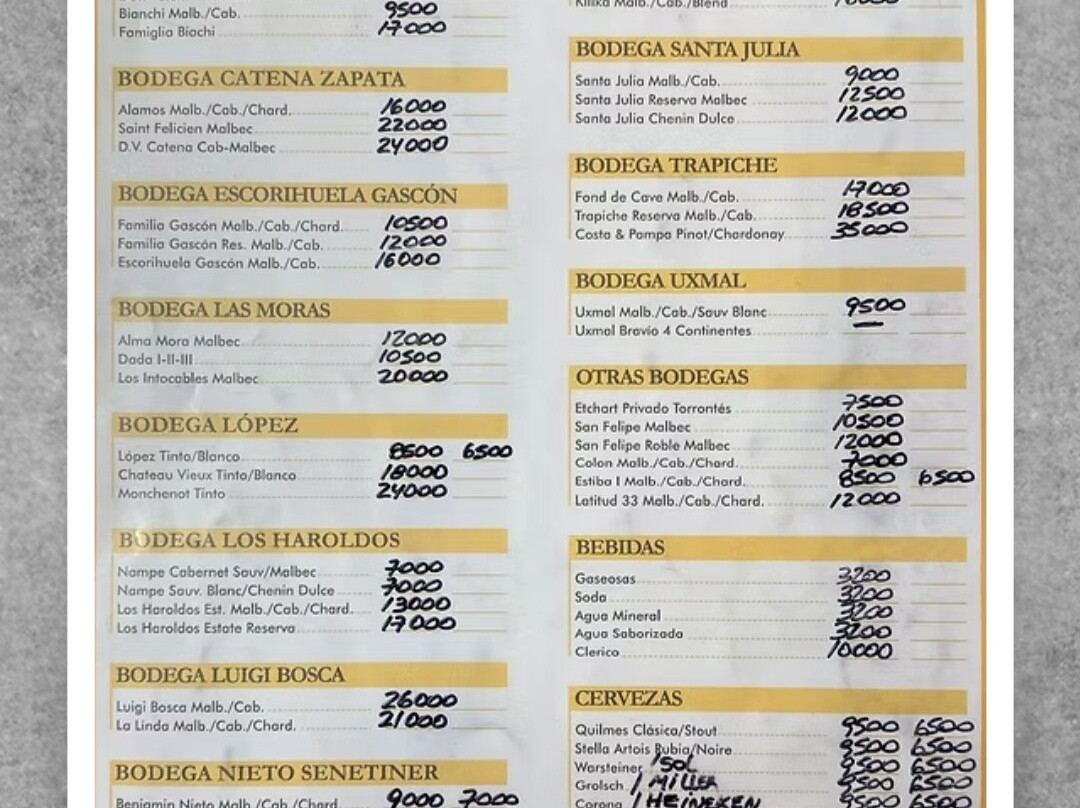 Bianchi Malb./Cab. 9500
Famiglia Biachi 17000
BODEGA CATENA ZAPATA
Alamos Malb./Cab./Chard. 16000
Saint Felicien Malbec 22000
D.V. Catena Cab-Malbec 24000
BODEGA ESCORIHUELA GASCÓN
Familia Gascón Malb./Cab./Chard. 10500
Familia Gascón Res. Malb./Cab. 12000
Escorihuela Gascón Malb./Cab. 16000
BODEGA LAS MORAS
Alma Mora Malbec 12000
Dada I-II-III 10500
Los Intocables Malbec 20000
BODEGA LÓPEZ
López Tinto/Blanco 8500 6500
Chateau Vieux Tinto/Blanco 18000
Monchenot Tinto 24000
BODEGA LOS HAROLDOS
Nampe Cabernet Sauv/Malbec 7000
Nampe Sauv. Blanc/Chenin Dulce 7000
Los Haroldos Est. Malb./Cab./Chard. 13000
Los Haroldos Estate Reserva 17000
BODEGA LUIGI BOSCA
Luigi Bosca Malb./Cab. 26000
La Linda Malb./Cab./Chard. 21000
BODEGA NIETO SENETINER
Benjamin Nieto Malb./Cab./Chard. 9000 7000
Killka Malb./Cab./Blend
BODEGA SANTA JULIA
Santa Julia Malb./Cab. 9000
Santa Julia Reserva Malbec 12500
Santa Julia Chenin Dulce 12000
BODEGA TRAPICHE
Fond de Cave Malb./Cab. 17000
Trapiche Reserva Malb./Cab. 18500
Costa & Pampa Pinot/Chardonay 35000
BODEGA UXMAL
Uxmal Malb./Cab./Sauv Blanc 9500
Uxmal Bravío 4 Continentes —
OTRAS BODEGAS
Etchart Privado Torrontés 7500
San Felipe Malbec 10500
San Felipe Roble Malbec 12000
Colon Malb./Cab./Chard. 7000
Estiba I Malb./Cab./Chard. 8500 6500
Latitud 33 Malb./Cab./Chard. 12000
BEBIDAS
Gaseosas 3200
Soda 3200
Agua Mineral 3200
Agua Saborizada 3200
Clerico 10000
CERVEZAS
Quilmes Clásica/Stout 9500 6500
Stella Artois Rubia/Noire 9500 6500
Warsteiner / SOL 9500 6500
Grolsch / MILLER 9500 6500
Corona / HEINEKEN 9500 6500